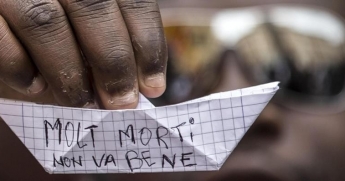 MOLT MORTI
NON VA BENE